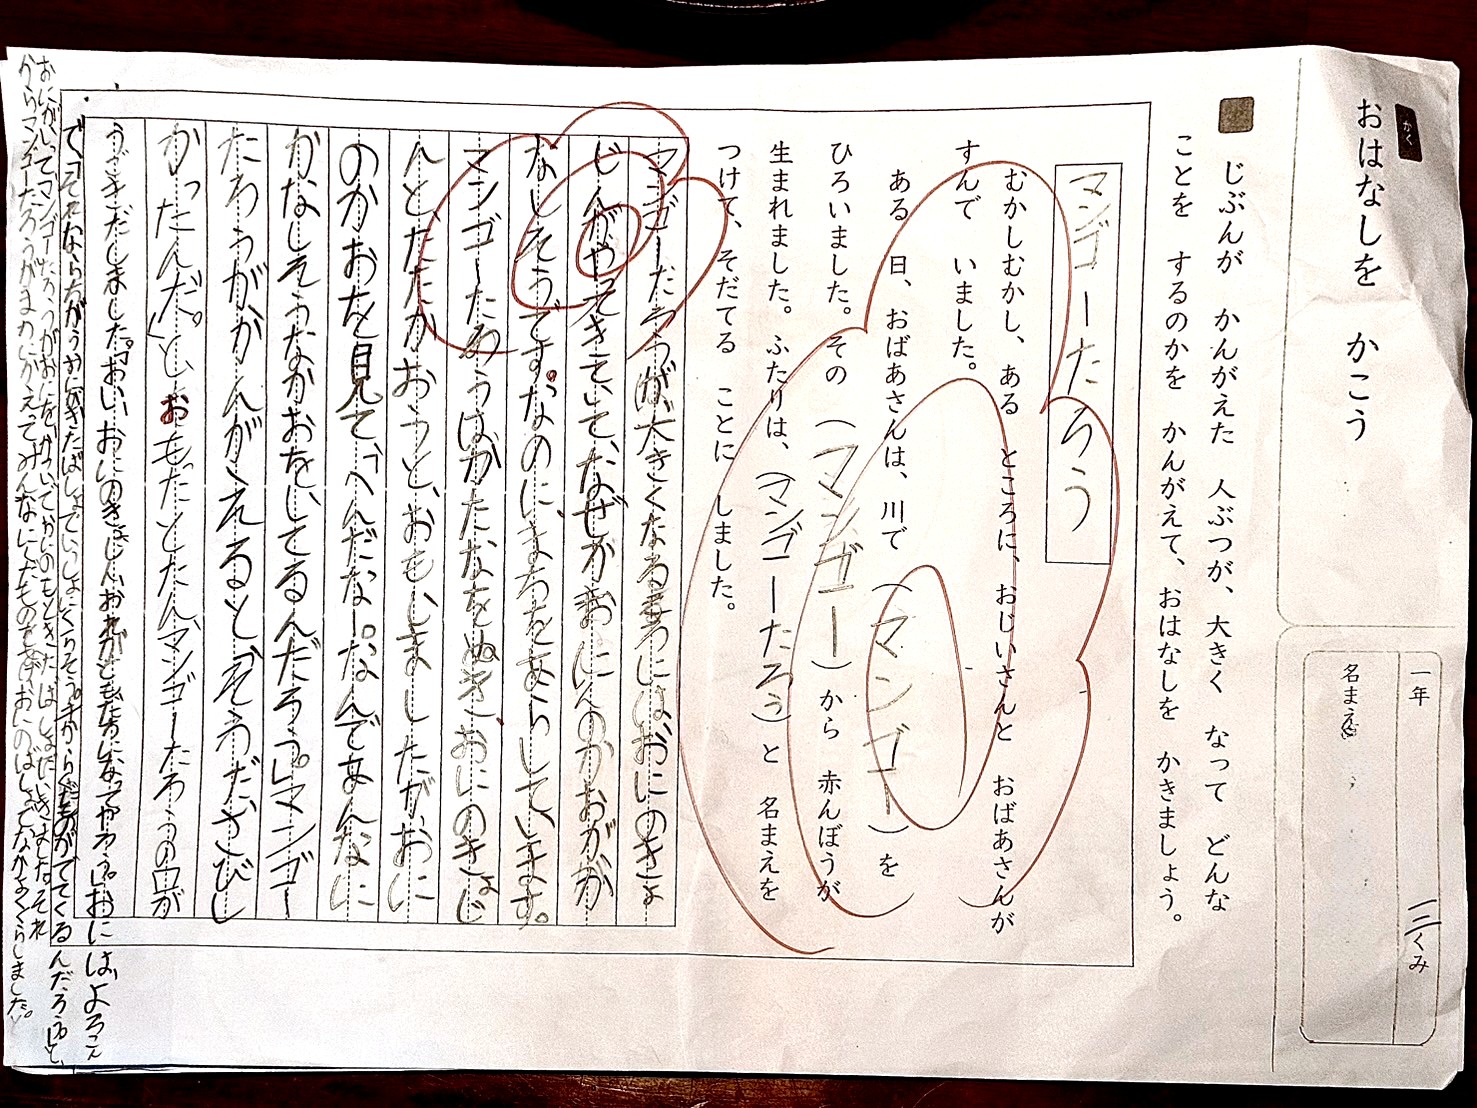 かく
おはなしを かこう
一年 三くみ
名まえ
じぶんが かんがえた 人ぶつが、大きく なって どんな
ことを するのかを かんがえて、おはなしを かきましょう。
マンゴーたろう
むかしむかし、ある ところに、おじいさんと おばあさんが
すんで いました。
ある 日、おばあさんは、川で (マンゴー)を
ひろいました。その (マンゴー)から 赤んぼうが
生まれました。ふたりは、(マンゴーたろう)と 名まえを
つけて、そだてる ことに しました。
マンゴーたろうが大きくなるころにはおにのきょ
じんがやってきていて、なぜかおにのかおがか
なしそうです。なのに、まちをあらしています。
マンゴーたろうはかたなをぬき、おにのきょじ
んとたたかおうと、おもいましたがおに
のかおを見て、「へんだなー。なんであんなに
かなしそうなかおをしてるんだろう。」マンゴー
たろうがかんがえると、「そうださびし
かったんだ。」とおもったとたんマンゴーたろうの口が
うごきだしました。「おい、おにのきょじん、おれがともだちになってやろう。」おにはよろこん
で、「それなら
おにがいてマンゴーたろうがおにを
からマンゴーたろうが みんなに おにのばしょでなかよくくらしましたと。